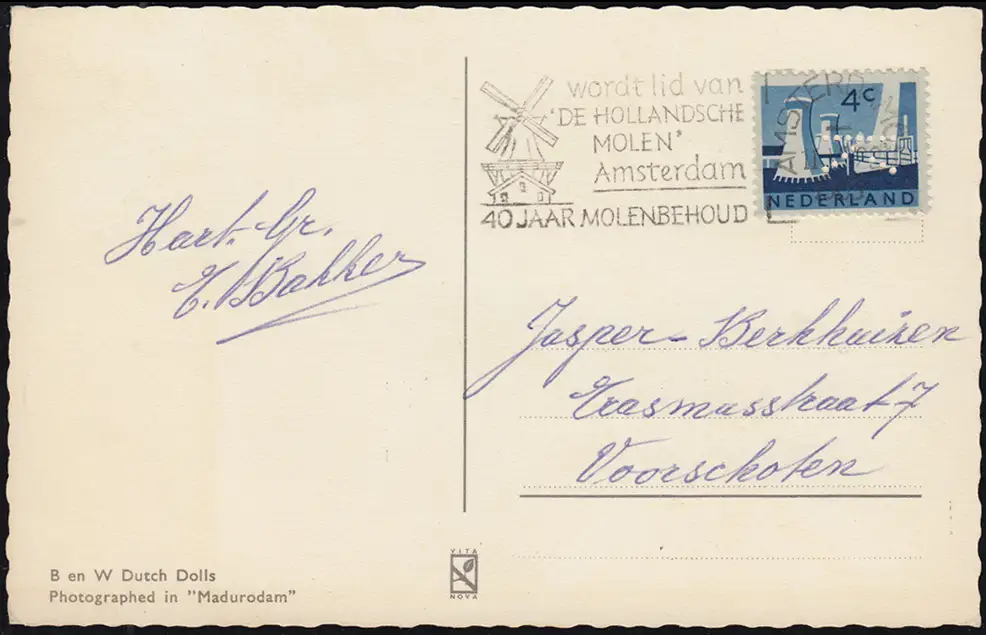 wordt lid van
'DE HOLLANDSCHE
MOLEN'
Amsterdam
40 JAAR MOLENBEHOUD
4c
AMSTERD
NEDERLAND
Hart. Gr.
E. Bakker
Jasper-Berkhuizen
Erasmusstraat 7
Voorschoten
B en W Dutch Dolls
Photographed in "Madurodam"
VITA
NOVA